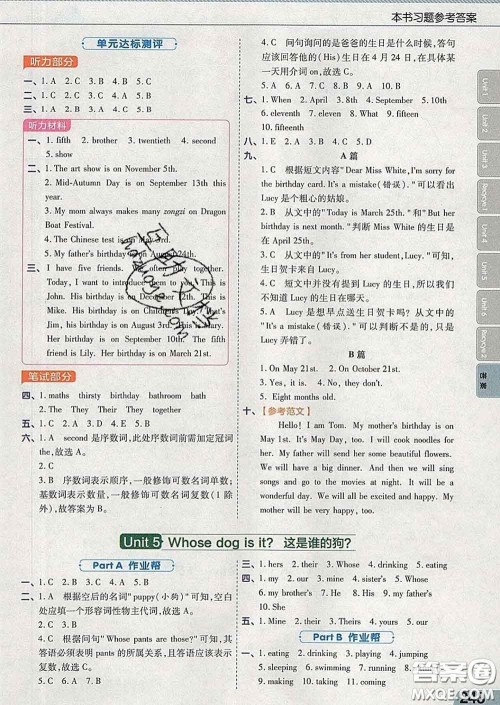 本书习题参考答案
单元达标测评
听力部分
一、1. A 2. C 3. B 4. B 5. A
二、1. C 2. A 3. B 4. A 5. B
听力材料
一、1. fifth 2. brother 3. twentieth 4. second
5. show
二、1. The art show is on November 5th.
2. Mid-Autumn Day is on September 13th this
year.
3. My mom always makes many zongzi on Dragon
Boat Festival.
4. The Chinese test is on May 3rd.
5. My father's birthday is on August 24th.
三、I have five friends. We often play together.
Today, I want to introduce them to you. This is
John. His birthday is on December 12th. This is
Mike. His birthday is on October 1st. What's this?
Jim, his birthday is on August 3rd. This is Mary.
Her birthday is on September 10th. The fifth
friend is Lily. Her birthday is on March 21st.
笔试部分
四、1. maths thirsty birthday bathroom bath
2. The They Their They together
五、1. C 2. A 3. B 4. A 5. C
六、1. A second 是序数词,此处序数词前需加定冠词
the,故选 A。
2. B
3. B 序数词表示顺序,一般修饰可数名词单数;
基数词表示数量,一般修饰可数名词复数(1 除
外)。故答案为 B。
4. C 问句询问的是爸爸的生日是什么时候,答句
应该回答他的(His)生日在 4 月 24 日,在具体某
一天用介词 on,故选 C。
5. A 6. A 7. B 8. B 9. A 10. B
七、1. When 2. April 3. 8th 4. September 5. 10th
6. eleventh 7. eleven 8. June 9. what 10. fifteen
11. fifteenth
八、1. B 2. A 3. A 4. B 5. B
九、 A 篇
1. C 根据短文内容"Dear Miss White, I'm sorry for
the birthday card. It's a mistake(错误)."可以看出
Lucy 是个粗心的姑娘。
2. B 从文中的"Today is March 25th."和"But her
birthday is next month."判断 Miss White 的生日是
在 April 25th。
3. A 从文中的"It's from her student, Lucy."可知,
生日贺卡来自 Lucy。
4. C 从短文中并没有提到 Lucy 的生日,所以我们
不知道 Lucy 的生日是在哪一天。
5. A Lucy 是想早点送生日贺卡吗?不是,从文中
的"It's a mistake(错误)."可以判断出来,是 Lucy
弄错了。
B 篇
1. On May 21st. 2. On October 21st.
3. Yes, it is. 4. No, they aren't.
5. Eight months old.
十、【参考范文】
Hello! I am Tom. My mother's birthday is on
May 1st. It's May Day, too. I will cook noodles for
her. My father will send some beautiful flowers.
We will have a big dinner. And then we will sing
songs and go to the movies in the evening. It will be a
wonderful day. We all will be excited and happy. My
mother will be very happy.
Unit 5 Whose dog is it? 这是谁的狗?
Part A 作业帮
一、1. C 2. B 3. A 4. B 5. C
二、1. A 根据空后的名词"puppy(小狗)"可知,空白
处应填一个形容词性物主代词,故选 A。
2. C
3. A
4. C 根据问句"Whose pants are those?"可知,其
答语必须表明 pants 的所属关系,且答语中需体现
复数,故选 C。
5. C 6. A 7. B
三、1. hers 2. their 3. Whose 4. drinking 5. eating
四、1. my 2. our 3. mine 4. sister's 5. sister's 6. my
7. my brother's 8. his 9. Whose 10. yours
11. Grandma's
五、1. Mine 2. Theirs 3. yours 4. his
Part B 作业帮
一、1. eating 2. drinking 3. playing 4. jumping
5. sleeping 6. swimming 7. running 8. eating
二、1. C 2. A 3. A 4. B 5. A
Unit 1
Unit 2
Unit 3
Recycle 1
Unit 4
Unit 5
Unit 6
Recycle 2
答案
答案圈
MXQE.COM